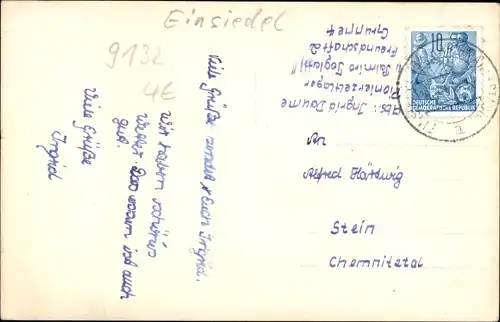 Einsiedel
9132
4€
Viele Grüße sendet Euch Ingrid.
Wir haben schönes
Wetter. Das
ist auch
gut.
Viele Grüße
Ingrid
Abs: Ingrid Daume
Pionierzeltlager
"Palmiro Togliatti"
Freundschaft 2
Gruppe 4
DEUTSCHE
DEMOKRATISCHE REPUBLIK
An
Alfred
Stein
Chemnitztal